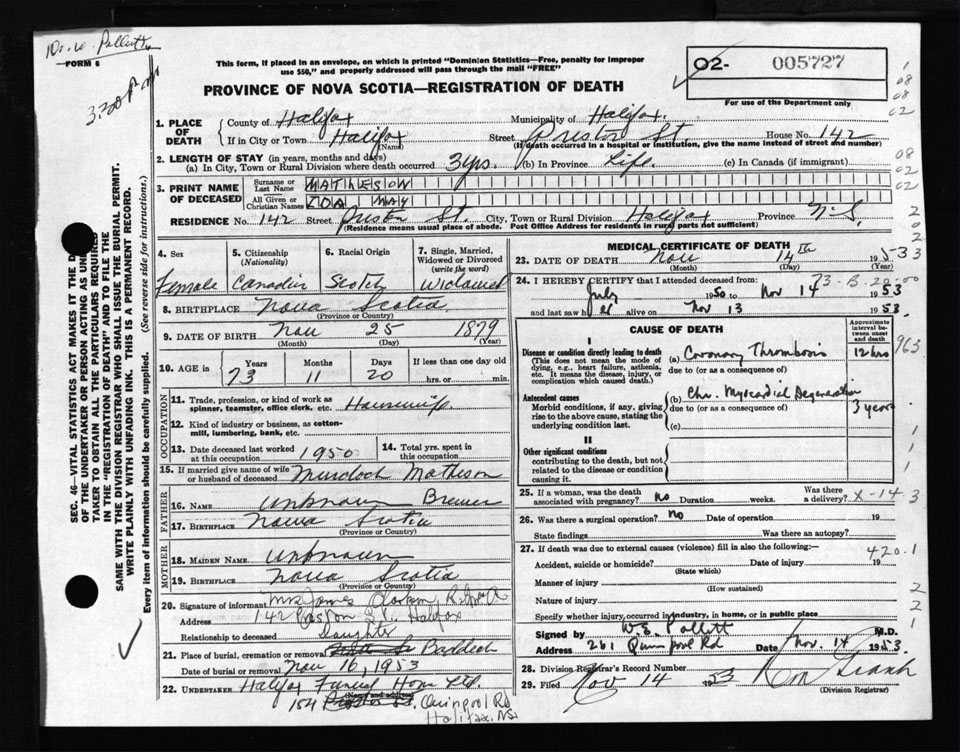 Dr. W. Pollett
FORM 6
3.200
This form, if placed in an envelope, on which is printed "Dominion Statistics—Free, penalty for improper
use $50," and properly addressed will pass through the mail "FREE"
PROVINCE OF NOVA SCOTIA—REGISTRATION OF DEATH
02- 005727
For use of the Department only
1. PLACE OF DEATH
County of Halifax Municipality of Halifax.
If in City or Town Halifax Street Preston St House No. 142
(Name) (If death occurred in a hospital or institution, give the name instead of street and number)
2. LENGTH OF STAY (in years, months and days)
(a) In City, Town or Rural Division where death occurred 3 yrs. (b) In Province Life. (c) In Canada (if immigrant)
3. PRINT NAME OF DECEASED
Surname or Last Name MATHESON
All Given or Christian Names IDA MAY
RESIDENCE No. 142 Street Preston St. City, Town or Rural Division Halifax Province N.S.
(Residence means usual place of abode. Post Office Address for residents in rural parts not sufficient)
4. Sex Female
5. Citizenship (Nationality) Canadian
6. Racial Origin Scotch
7. Single, Married, Widowed or Divorced (write the word) Widowed
8. BIRTHPLACE Nova Scotia
(Province or Country)
9. DATE OF BIRTH Nov 25 1879
(Month) (Day) (Year)
10. AGE in Years 73 Months 11 Days 20 If less than one day old
hrs. or min.
OCCUPATION
11. Trade, profession, or kind of work as spinner, teamster, office clerk, etc. Housewife.
12. Kind of industry or business, as cotton-mill, lumbering, bank, etc.
13. Date deceased last worked at this occupation 1950
14. Total yrs. spent in this occupation
15. If married give name of wife or husband of deceased Murdoch Matheson
FATHER
16. Name unknown Brewer
17. BIRTHPLACE Nova Scotia
MOTHER
18. MAIDEN NAME. unknown
19. BIRTHPLACE Nova Scotia
(Province or Country)
20. Signature of informant Mrs James
Address 142 Preston St. Halifax
Relationship to deceased Daughter
21. Place of burial, cremation or removal Baddeck
Date of burial or removal Nov 16, 1953
22. UNDERTAKER Halifax Funeral Home Ltd.
(Name and address)
Quinpool Rd
Halifax, NS.
MEDICAL CERTIFICATE OF DEATH
23. DATE OF DEATH Nov 14th 1953
(Month) (Day) (Year)
24. I HEREBY CERTIFY that I attended deceased from:
July 1950 to Nov 14 1953
and last saw h er alive on Nov 13 1953.
CAUSE OF DEATH
Approximate interval between onset and death
I
Disease or condition directly leading to death (a) Coronary Thrombosis 12 hrs
(This does not mean the mode of dying, e.g., heart failure, asthenia, etc. It means the disease, injury, or complication which caused death.)
due to (or as a consequence of)
Antecedent causes (b) Chr. Myocardial Degeneration 3 years
Morbid conditions, if any, giving rise to the above cause, stating the underlying condition last.
due to (or as a consequence of)
(c)
II
Other significant conditions
contributing to the death, but not related to the disease or condition causing it.
25. If a woman, was the death associated with pregnancy? no Duration weeks. Was there a delivery? X-14.3
26. Was there a surgical operation? No Date of operation 19
State findings Was there an autopsy?
27. If death was due to external causes (violence) fill in also the following:— 420.1
Accident, suicide or homicide? Date of injury 19
(State which)
Manner of injury
(How sustained)
Nature of injury
Specify whether injury occurred in industry, in home, or in public place
Signed by W.E. Pollett M.D.
Address 261 Quinpool Rd Date Nov. 14 1953
28. Division Registrar's Record Number
29. Filed Nov 14 1953
(Division Registrar)
SEC. 46—VITAL STATISTICS ACT MAKES IT THE
OF THE UNDERTAKER OR PERSON ACTING AS UNDER
TAKER TO OBTAIN ALL THE PARTICULARS REQUIRED
IN THE "REGISTRATION OF DEATH" AND TO FILE THE
SAME WITH THE DIVISION REGISTRAR WHO SHALL ISSUE THE BURIAL PERMIT.
WRITE PLAINLY WITH UNFADING INK. THIS IS A PERMANENT RECORD.
Every item of information should be carefully supplied. (See reverse side for instructions.)